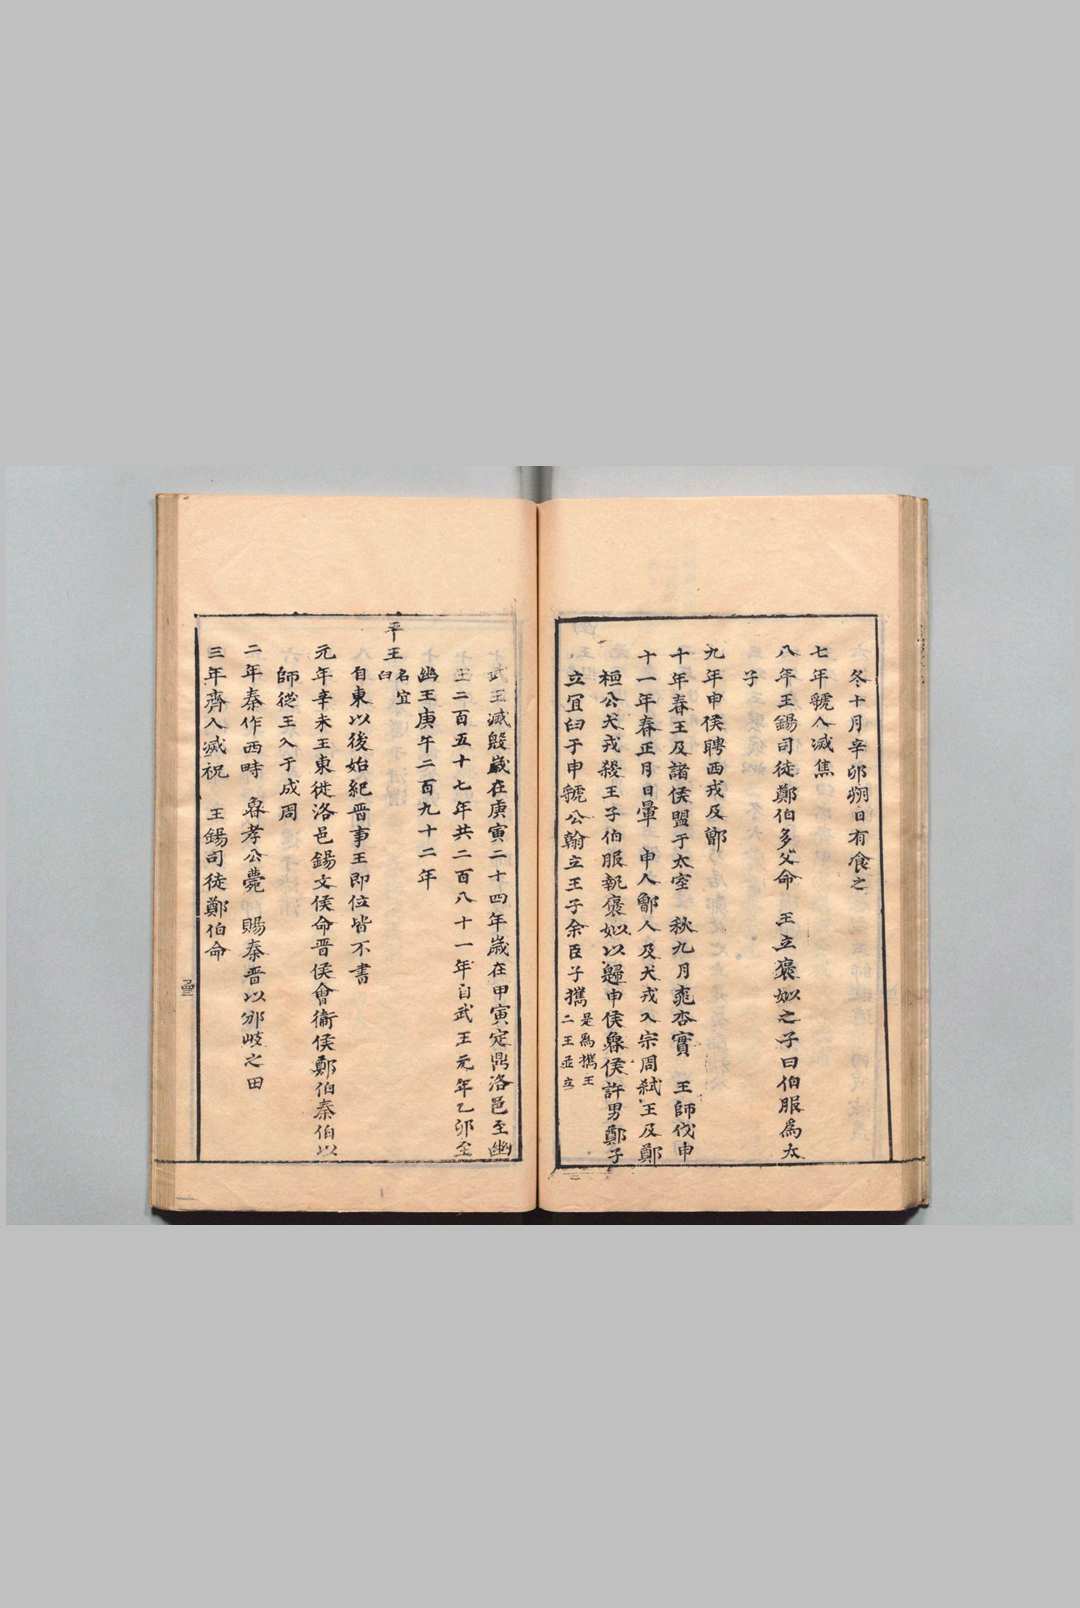 冬十月辛卯朔日有食之
七年虢人滅焦
八年王錫司徒鄭伯多父命　王立褒姒之子曰伯服爲太
子
九年申侯聘西戎及鄫
十年春王及諸侯盟于太室　秋九月桃杏實　王師伐申
十一年春正月日暈　申人鄫人及犬戎入宗周弑王及鄭
桓公犬戎殺王子伯服執褒姒以歸申侯魯侯許男鄭子
立宜臼于申虢公翰立王子余臣于攜是爲攜王
二王並立
武王滅殷歲在庚寅二十四年歲在甲寅定鼎洛邑至幽
王二百五十七年共二百八十一年自武王元年乙卯至
幽王庚午二百九十二年
平王名宜
臼
自東以後始紀晉事王即位皆不書
元年辛未王東徙洛邑錫文侯命晉侯會衞侯鄭伯秦伯以
師從王入于成周
二年秦作西畤　魯孝公薨　賜秦晉以邠岐之田
三年齊人滅祝　王錫司徒鄭伯命